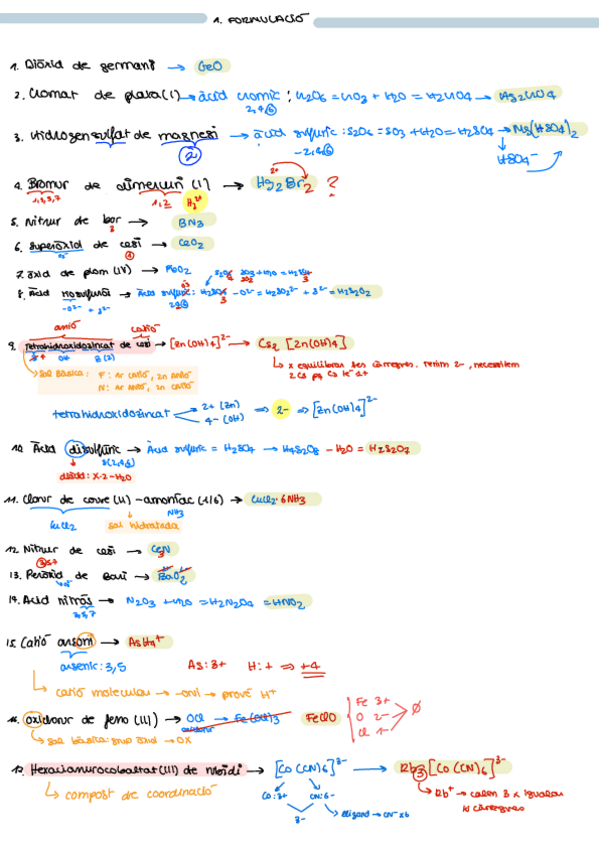 1. FORMULACIÓ
1. Diòxid de germani → GeO
2. Cromat de plata(I) → àcid cròmic : Cr2O6 = CrO3 + H2O = H2CrO4 → Ag2CrO4
2,4,6
3. Hidrogensulfat de magnesi → àcid sulfúric : S2O6 = SO3 + H2O = H2SO4 → Mg(HSO4)2
2
-2,4,6
HSO4-
4. Bromur de dimercuri (I) → Hg2Br2 ?
2+
1,3,5,7 1,2 Hg2 2+
5. Nitrur de bor → BN3
3
6. Superòxid de cesi → CeO2
7. òxid de plom (IV) → PbO2
8. Àcid → Àcid sulfúric: H2SO4 - O2- = H2SO3 2- + S2- = H2S2O2
-O2- + S2-
anió catió
9. Tetrahidroxidozincat de cesi → [Zn(OH)4]2- → Cs2 [Zn(OH)4]
Sal Bàsica: F: 1r catió, 2n anió
N: 1r anió, 2n catió
x equilibrar les càrregues. tenim 2-, necessitem
2 Cs pq Cs té 1+
tetrahidroxidozincat 2+ (Zn) ⇒ 2- ⇒ [Zn(OH)4]2-
4- (OH)
10. Àcid disulfúric → Àcid sulfúric = H2SO4 → H4S2O8 - H2O = H2S2O7
S(2,4,6)
diàcid: x·2-H2O
11. Clorur de coure (II) - amoníac (1/6) → CuCl2·6NH3
CuCl2 sal hidratada NH3
12. Nitrur de cesi → Ce3N
3,5+
13. Peròxid de Bari → BaO2
14. Àcid nitrós → N2O3 + H2O = H2N2O4 = HNO2
3,5,7
15. Catió arsoni → AsH4+
arsènic: 3,5 As: 3+ H: + ⇒ +4
catió molecular → -oni → prové H+
16. oxiclorur de ferro (III) → OCl → Fe(OCl)3 FeClO
Fe 3+
O 2-
Cl 1-
Ø
sal bàsica: grup òxid → OX
17. Hexacianurocobaltat(III) de rubidi → [Co(CN)6]3- → Rb3[Co(CN)6]3-
compost de coordinació
Co: 3+ CN: 6-
3- lligand → CN- x6
Rb+ → calen 3 x igualar
les càrregues